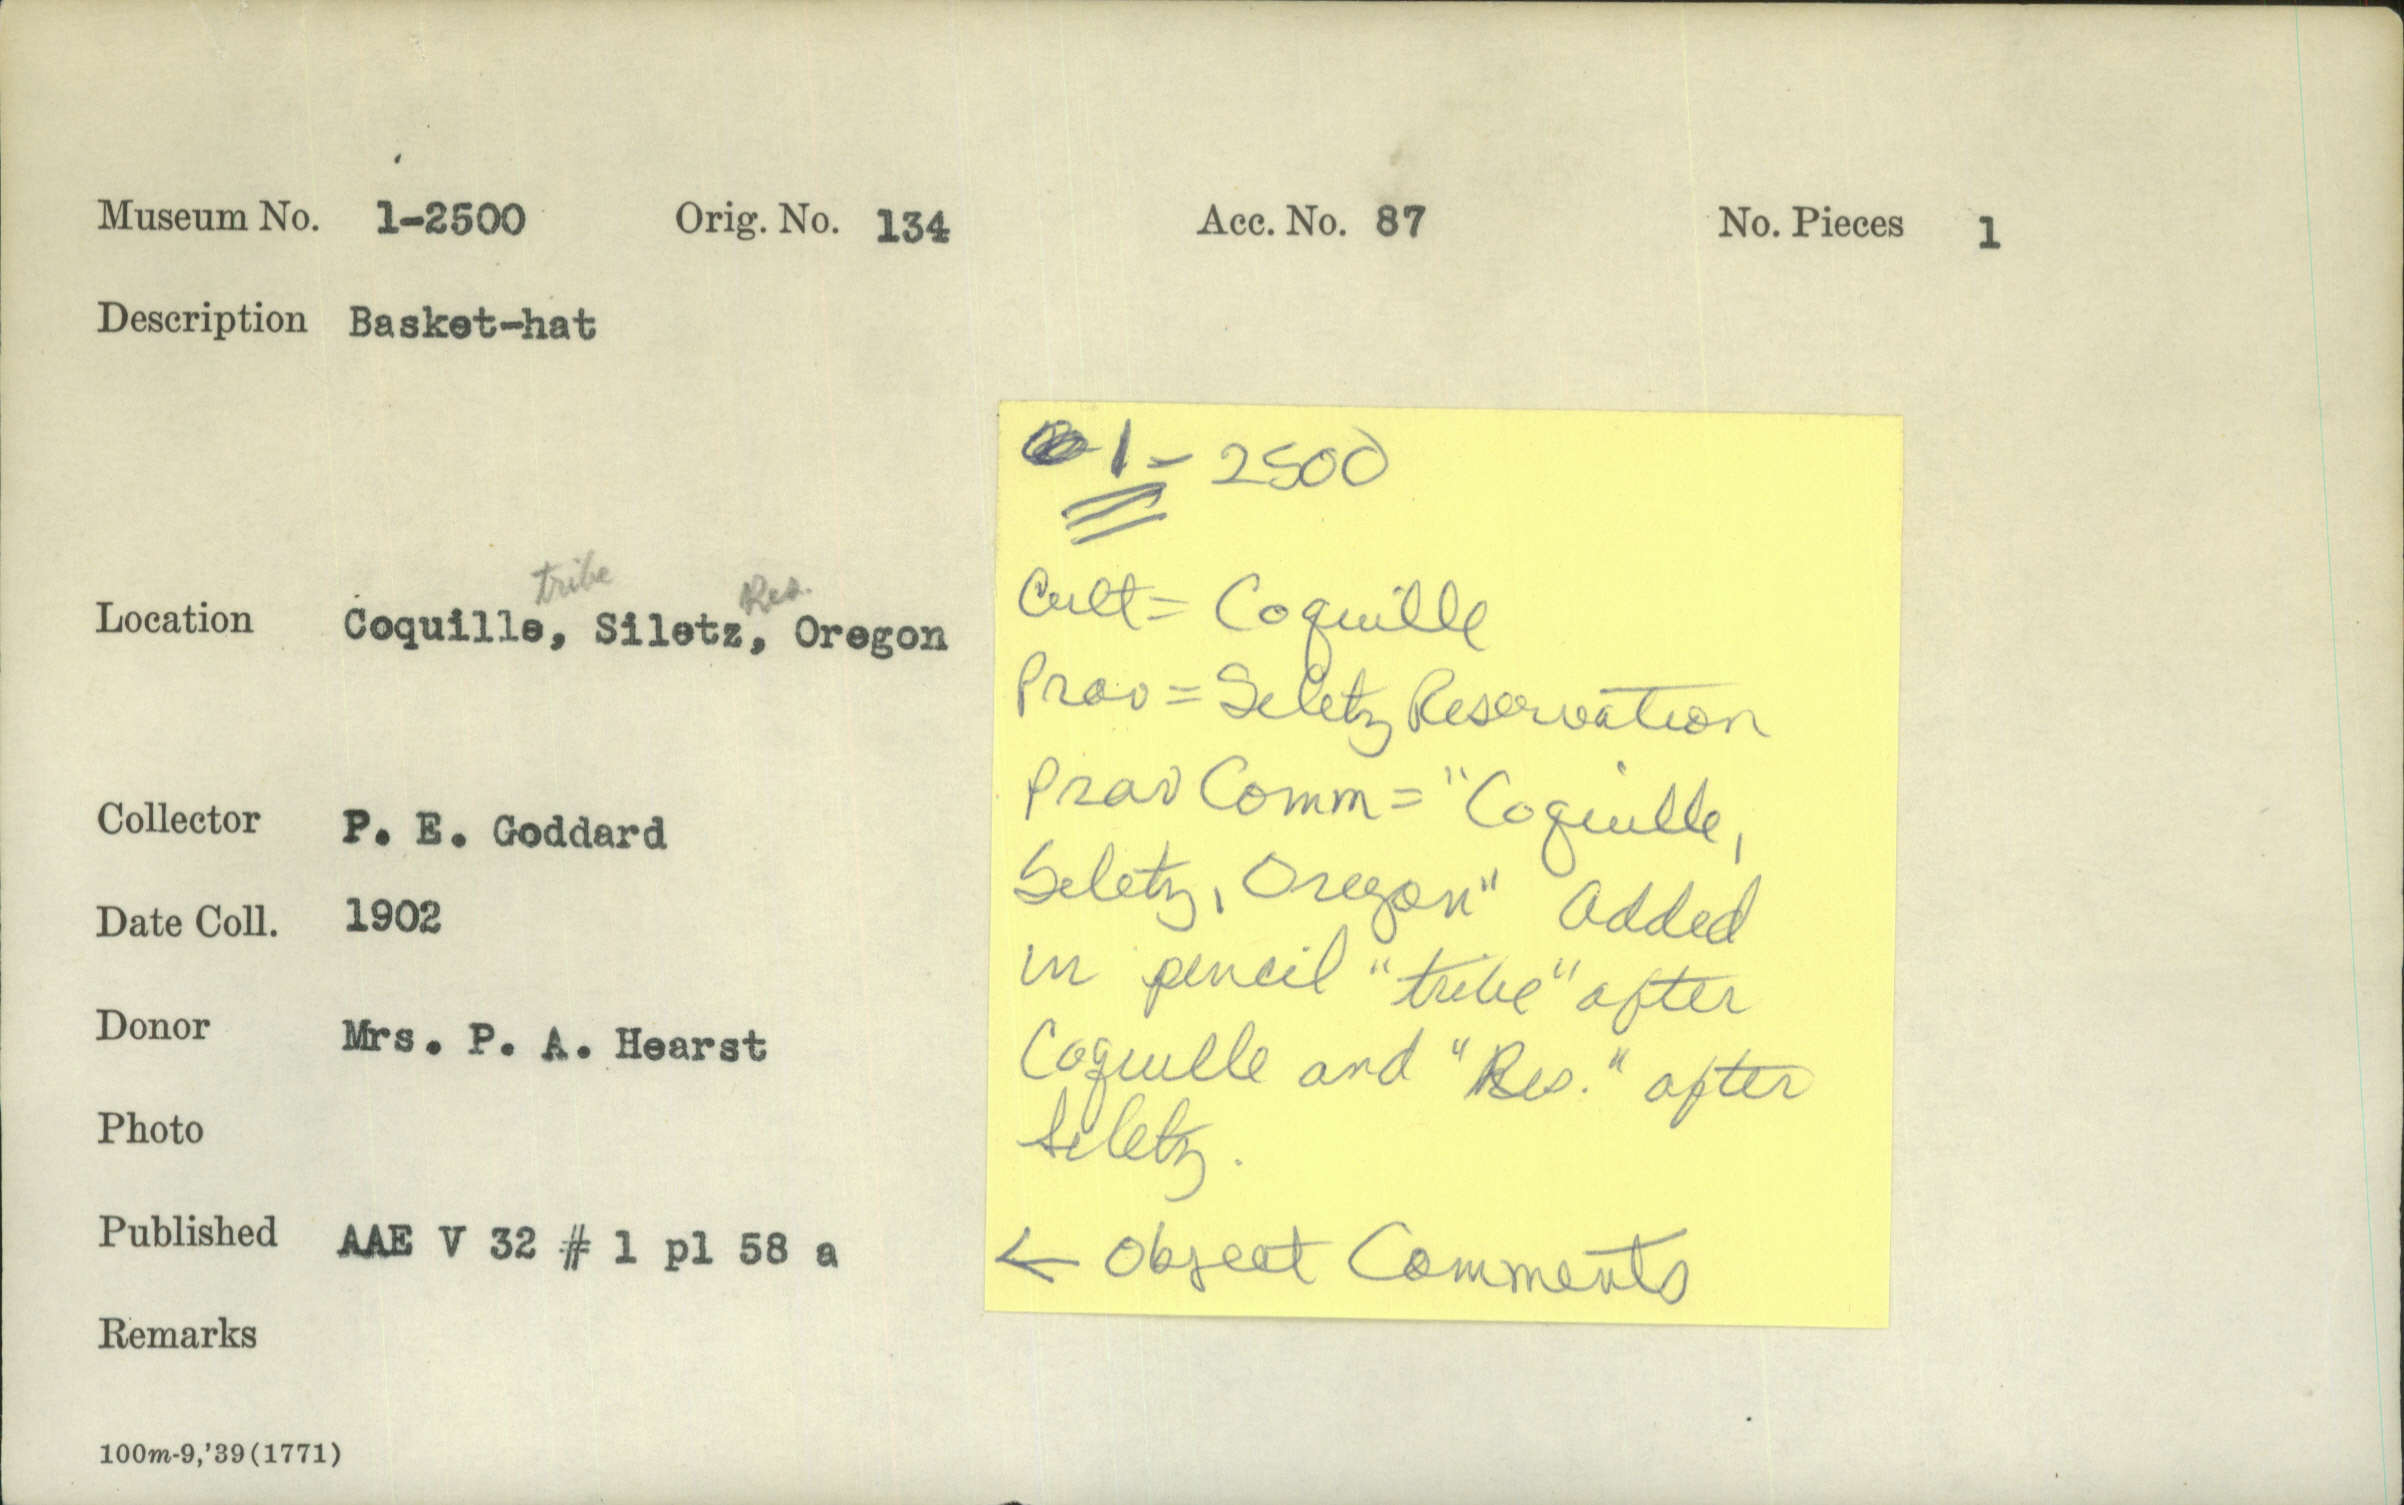 Museum No. 1-2500 Orig. No. 134 Acc. No. 87 No. Pieces 1
Description Basket-hat
tribe Res.
Location Coquille, Siletz, Oregon
Collector P. E. Goddard
Date Coll. 1902
Donor Mrs. P. A. Hearst
Photo
Published AAE V 32 # 1 pl 58 a
Remarks
100m-9,'39(1771)
1-2500
Cult = Coquille
Prov = Siletz Reservation
Prov Comm = "Coquille,
Siletz, Oregon" Added
in pencil "tribe" after
Coquille and "Res." after
Siletz.
← Object Comments